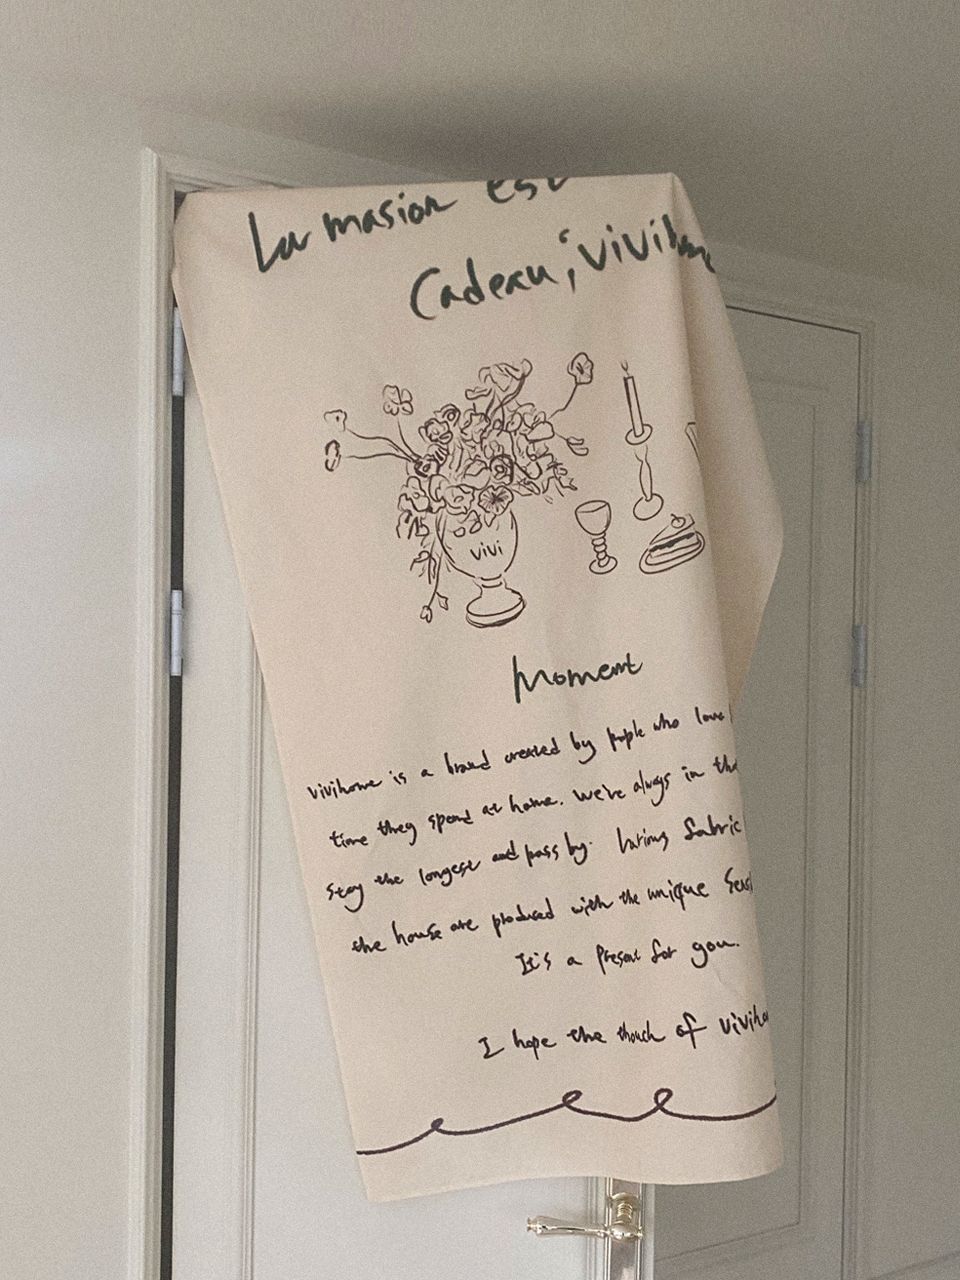 La masion est
Cadeau, 'vivihome
vivi
Moment
vivihome is a brand created by people who love
time they spend at home. We're always in the
stay the longest and pass by. fabric
the house are produced with the unique
It's a present for you.
I hope the thouch of